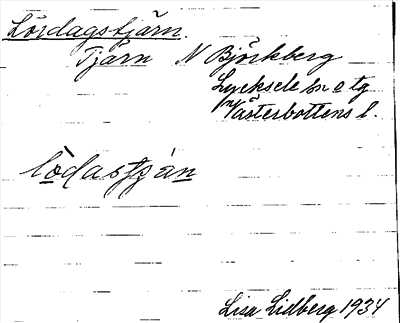 Lördagstjärn.
Tjärn N Björkberg
Lycksele sn o tg
Västerbottens l.
lòdastján
Lisa Lidberg 1934